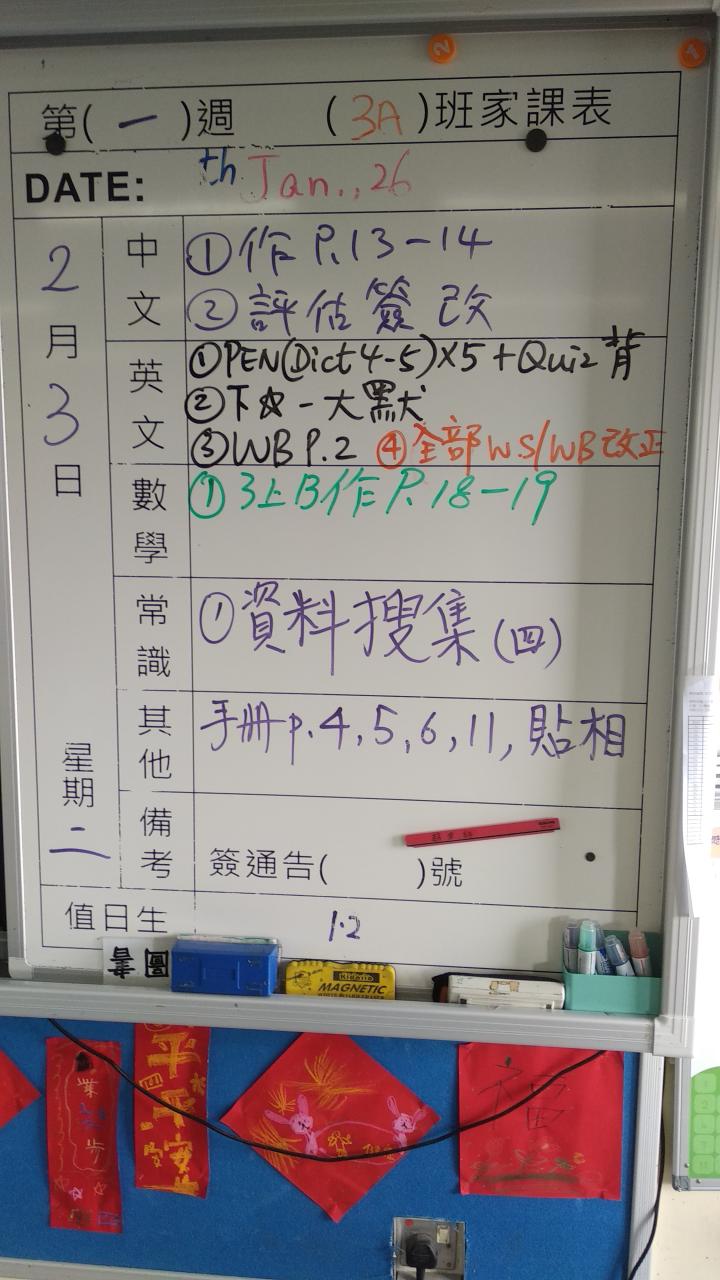 第(一)週 (3A)班家課表
DATE: th Jan., 26
2月3日
星期二
中文
①作 P.13-14
②評估簽改
英文
①PEN(Dict 4-5)×5+Quiz背
②下☆-大默
③WB P.2 ④全部WS/WB改正
數學
①3上B作P.18-19
常識
①資料搜集(四)
其他
手冊p.4,5,6,11,貼相
備考
簽通告( )號
值日生 1.2
圖書
MAGNETIC
平平安安
福
2
1